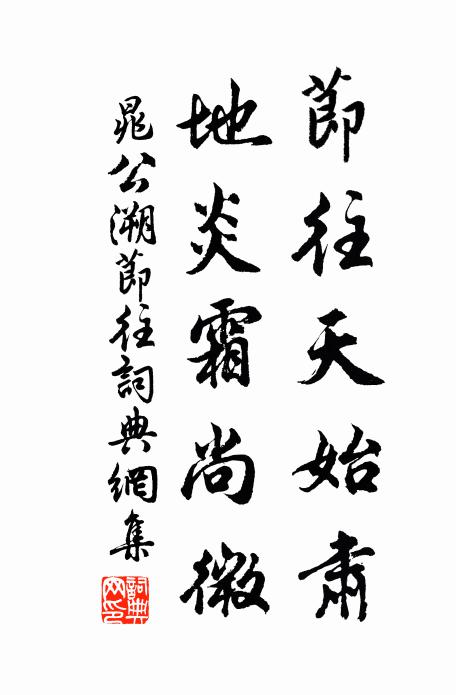 節往天始肅
地炎霜尚微
晁公溯節往詞典網集
詞典網印